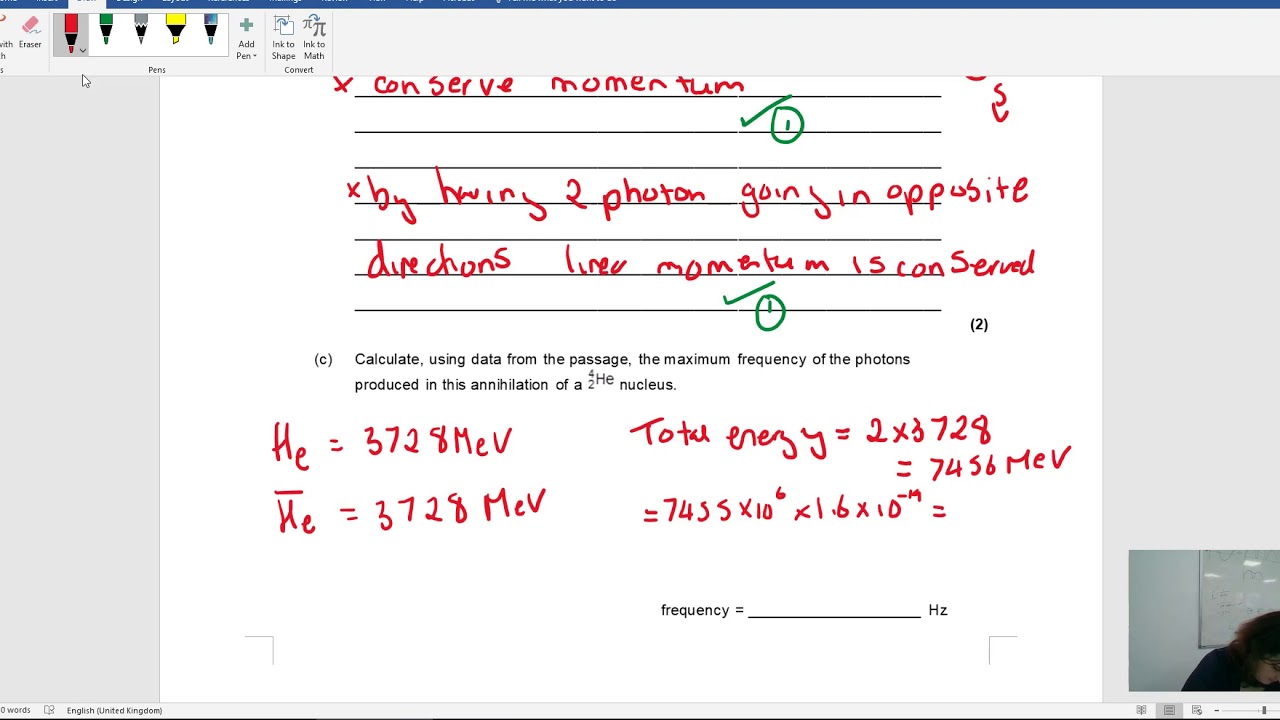 Eraser
Pens
Add
Pen
Ink to
Shape
Ink to
Math
Convert
x conserve momentum
1
x by having 2 photon going in opposite
directions liner momentum is conserved
1
(2)
(c) Calculate, using data from the passage, the maximum frequency of the photons
produced in this annihilation of a ⁴₂He nucleus.
He = 3728 MeV
Total energy = 2 x 3728
= 7456 MeV
H̅e = 3728 MeV
= 7455 x 10⁶ x 1.6 x 10⁻¹⁹ =
frequency = ____________________ Hz
0 words
English (United Kingdom)